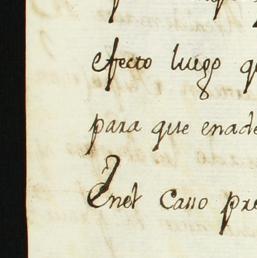 efecto luego q
para que enade
Enel Caso pre